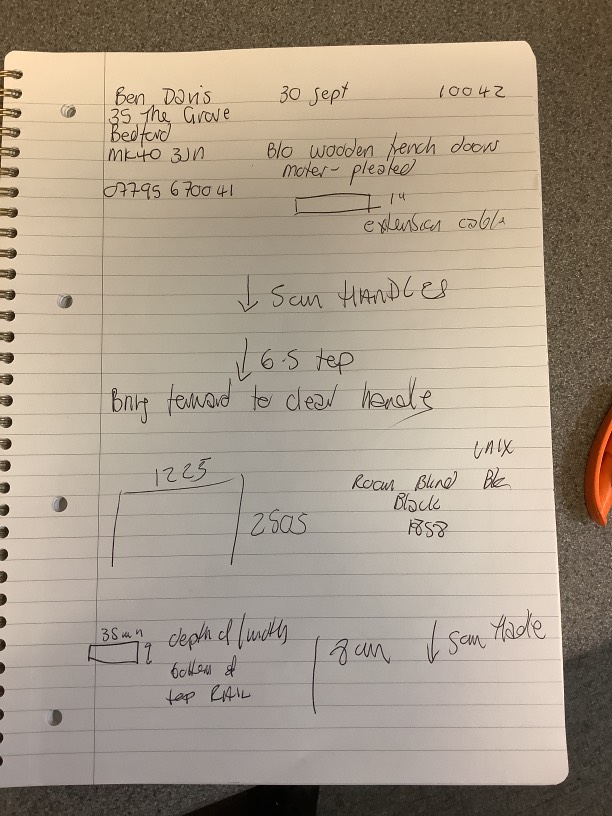 Ben Davis 30 Sept 10042
35 The Grove
Bedford
MK40 3JN B/O wooden french doors
moter - pleated
07795 670041
extension cable
↓ 5cm HANDLES
↓ 6.5 top
Bring forward to clear handle
1225
2505
UNIX
Room Blind
Black
1858
35mm 9
depth of
bottom of
top RAIL
8cm ↓ 5cm